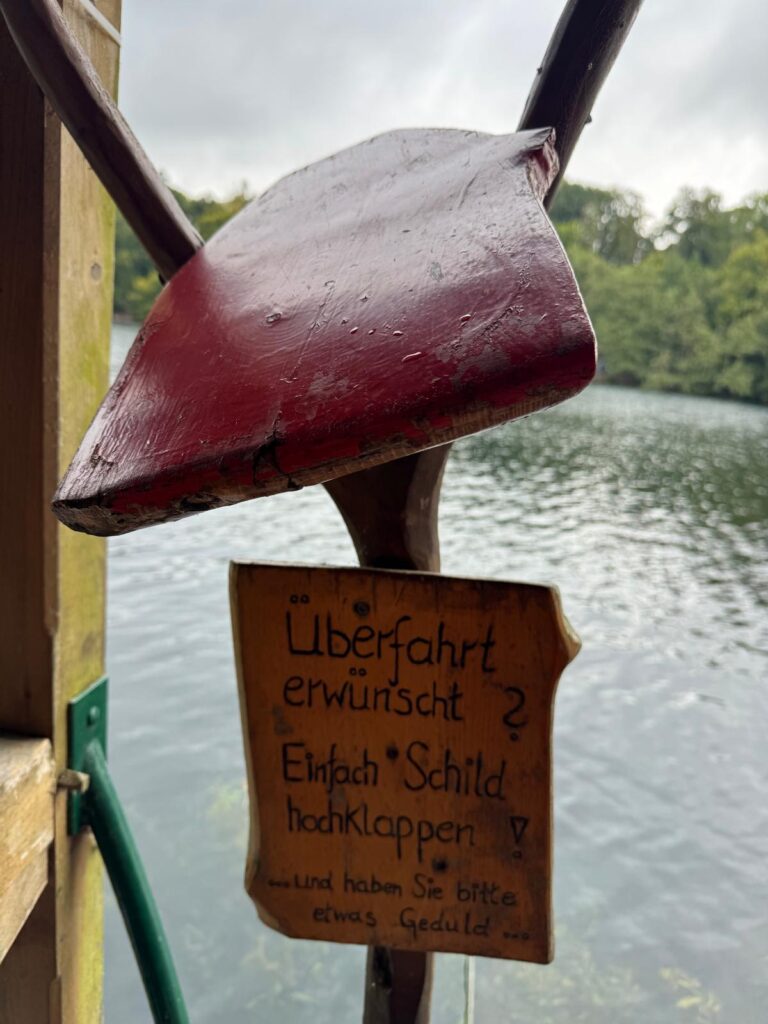 Überfahrt
erwünscht ?
Einfach Schild
hochklappen !
...und haben Sie bitte
etwas Geduld ...